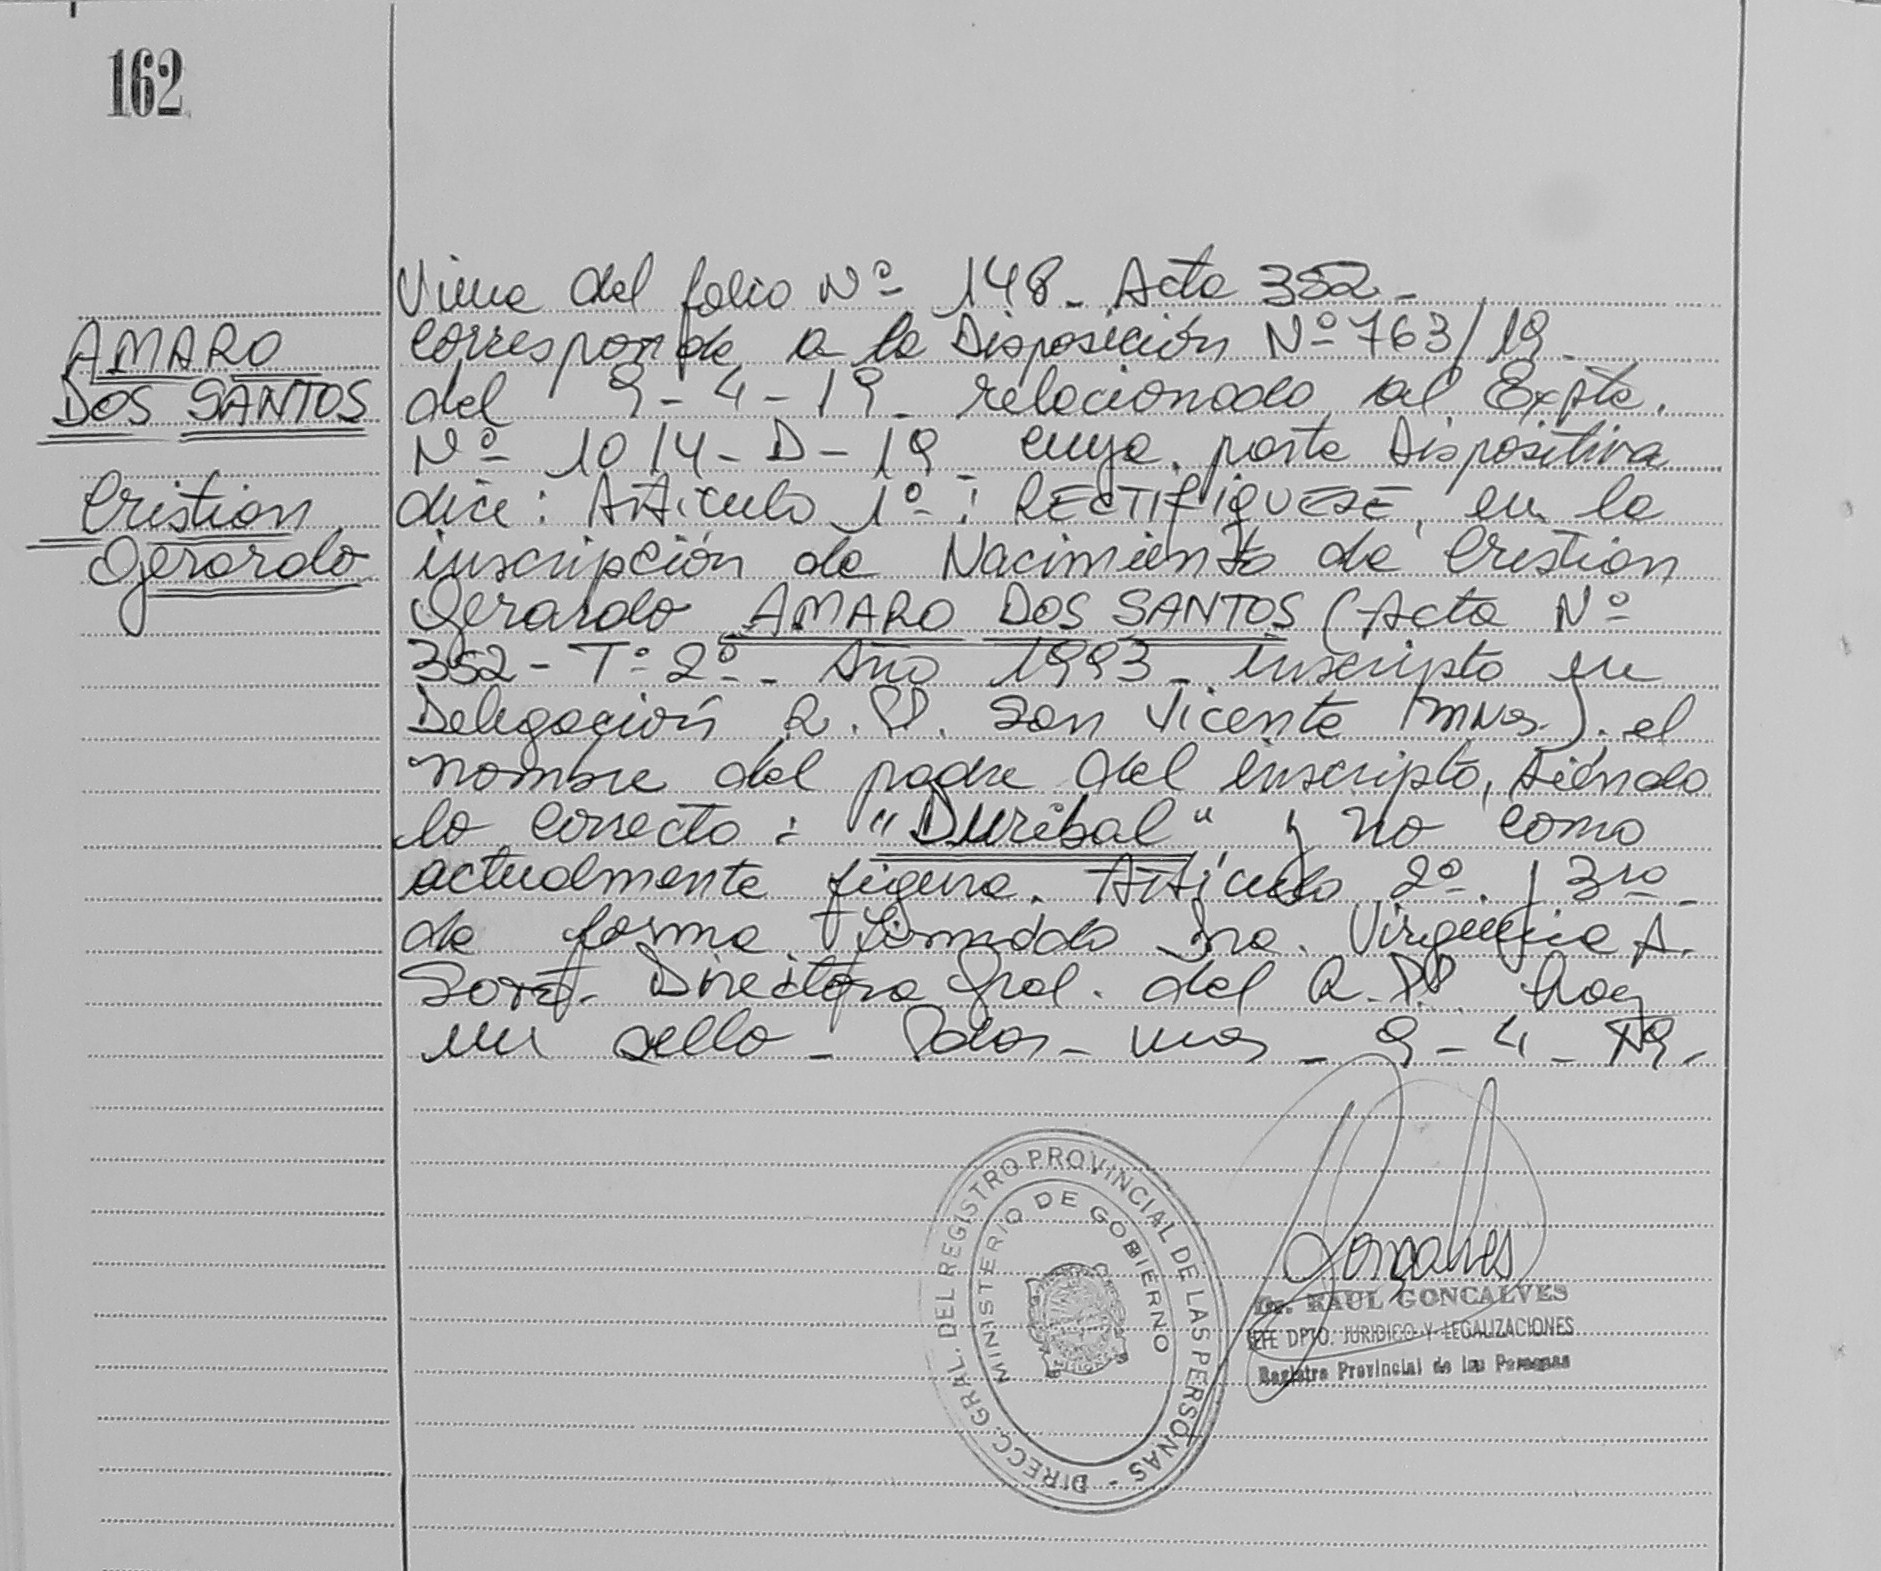 162
AMARO
DOS SANTOS
Cristian
Gerardo
Viene del folio Nº 148 - Acta 352 -
corresponde a la Disposición Nº 763/19 -
del 9-4-19 - relacionado al Expte.
Nº 1014-D-19 - cuya parte Dispositiva
dice: Artículo 1º: RECTIFIQUESE, en la
inscripción de Nacimiento de Cristian
Gerardo AMARO DOS SANTOS (Acta Nº
352 - Tº 2º - Año 1993 - inscripto en
Delegación R.P. San Vicente Mnes.). el
nombre del padre del inscripto, siendo
lo correcto: "Duribal" y no como
actualmente figura. Artículo 2º. y 3ro -
de forma Firmado Dra. A.
Directora Gral. del R.P. hay
un sello - Pdas - Mnes - 9-4-19.
DIRECC. GRAL. DEL REGISTRO PROVINCIAL DE LAS PERSONAS -
MINISTERIO DE GOBIERNO
Gonçalves
Dr. RAUL GONCALVES
JEFE DPTO. JURIDICO Y LEGALIZACIONES
Registro Provincial de las Personas